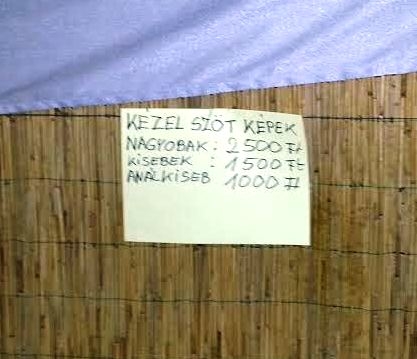 KEZEL SZŐT KÉPEK
NAGYOBAK : 2500 Ft
KISEBEK : 1500 Ft
ANÁLKISEB 1000 Ft